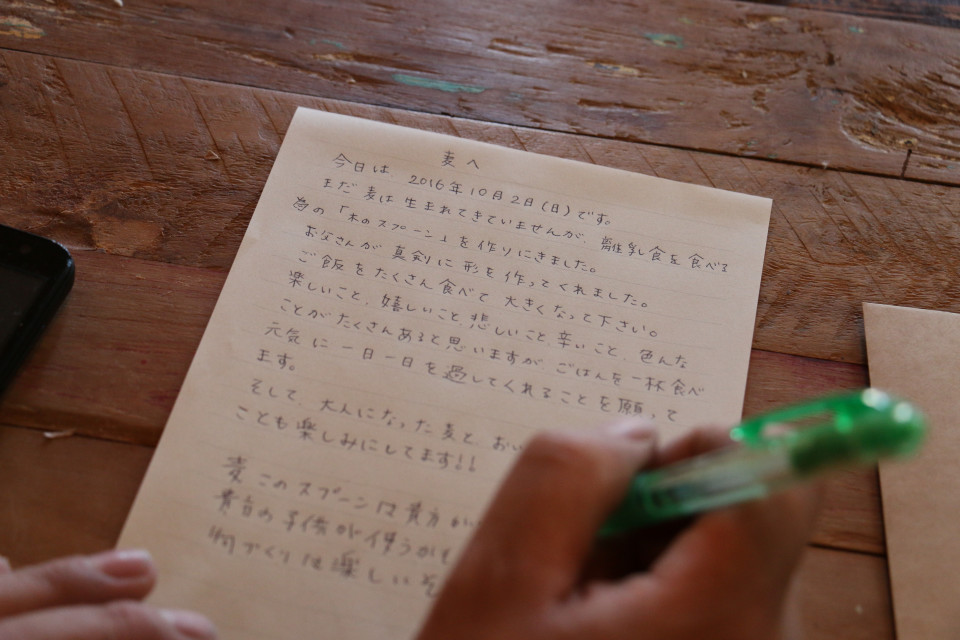 麦へ
今日は 2016年10月2日(日)です。
まだ麦は生まれてきていませんが、離乳食を食べる
為の「木のスプーン」を作りにきました。
お父さんが真剣に形を作ってくれました。
ご飯をたくさん食べて大きくなって下さい。
楽しいこと、嬉しいこと、悲しいこと、辛いこと、色んな
ことがたくさんあると思いますが、ごはんを一杯食べ
元気に一日一日を過してくれることを願って
ます。
そして、大人になった麦と、おい
ことも楽しみにしてます!!
麦 このスプーンは貴方が
貴方の子供が使うかも
物づくりは楽しいぞ